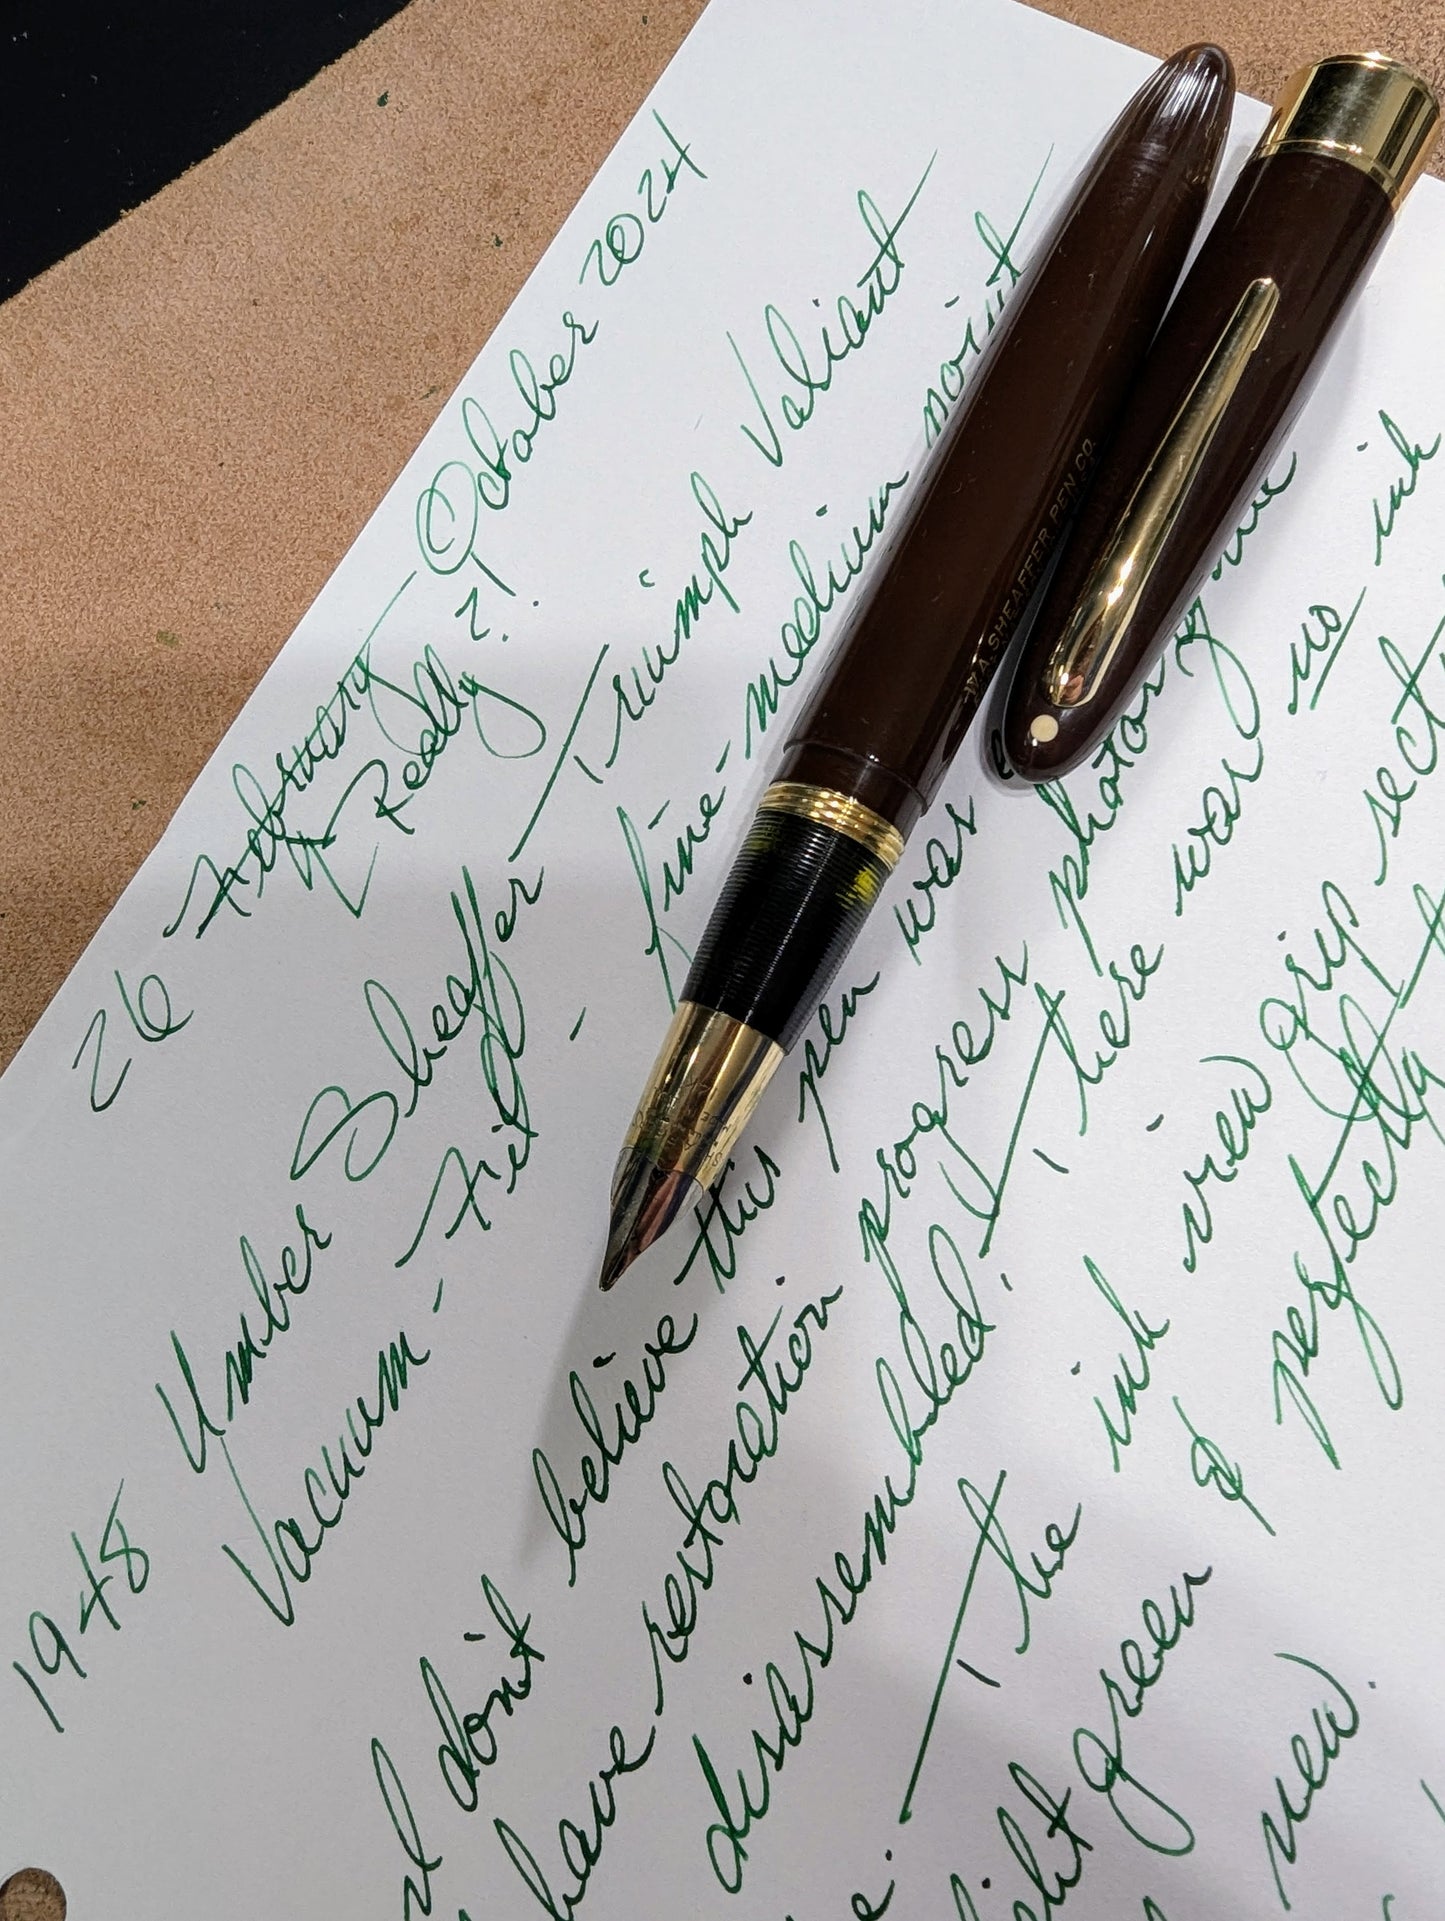 26 February October 2024
Really?!
1948 Umber Sheaffer Triumph Valiant
Vacuum-Fil - fine-medium point
I don't believe this pen was
have restoration progress photos
disassembled! There was no ink
The ink view grip
light green & perfectly
new.
W.A. SHEAFFER PEN CO.
SHEAFFER'S